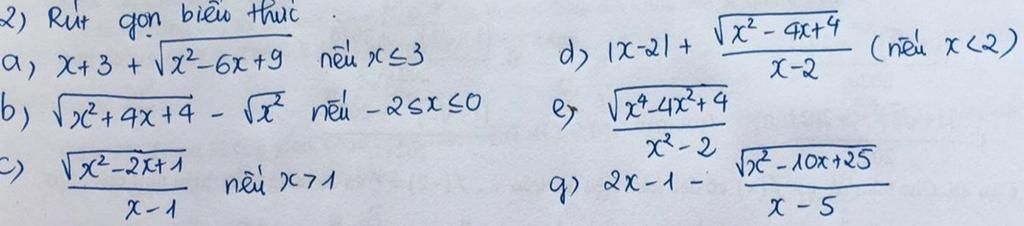 2) Rút gọn biểu thức
a) x+3 + √(x²-6x+9) nếu x≤3
b) √(x²+4x+4) - √(x²) nếu -2≤x≤0
c) √(x²-2x+1) / (x-1) nếu x>1
d) |x-2| + √(x²-4x+4) / (x-2) (nếu x<2)
e) √(x⁴-4x²+4) / (x²-2)
g) 2x-1 - √(x²-10x+25) / (x-5)